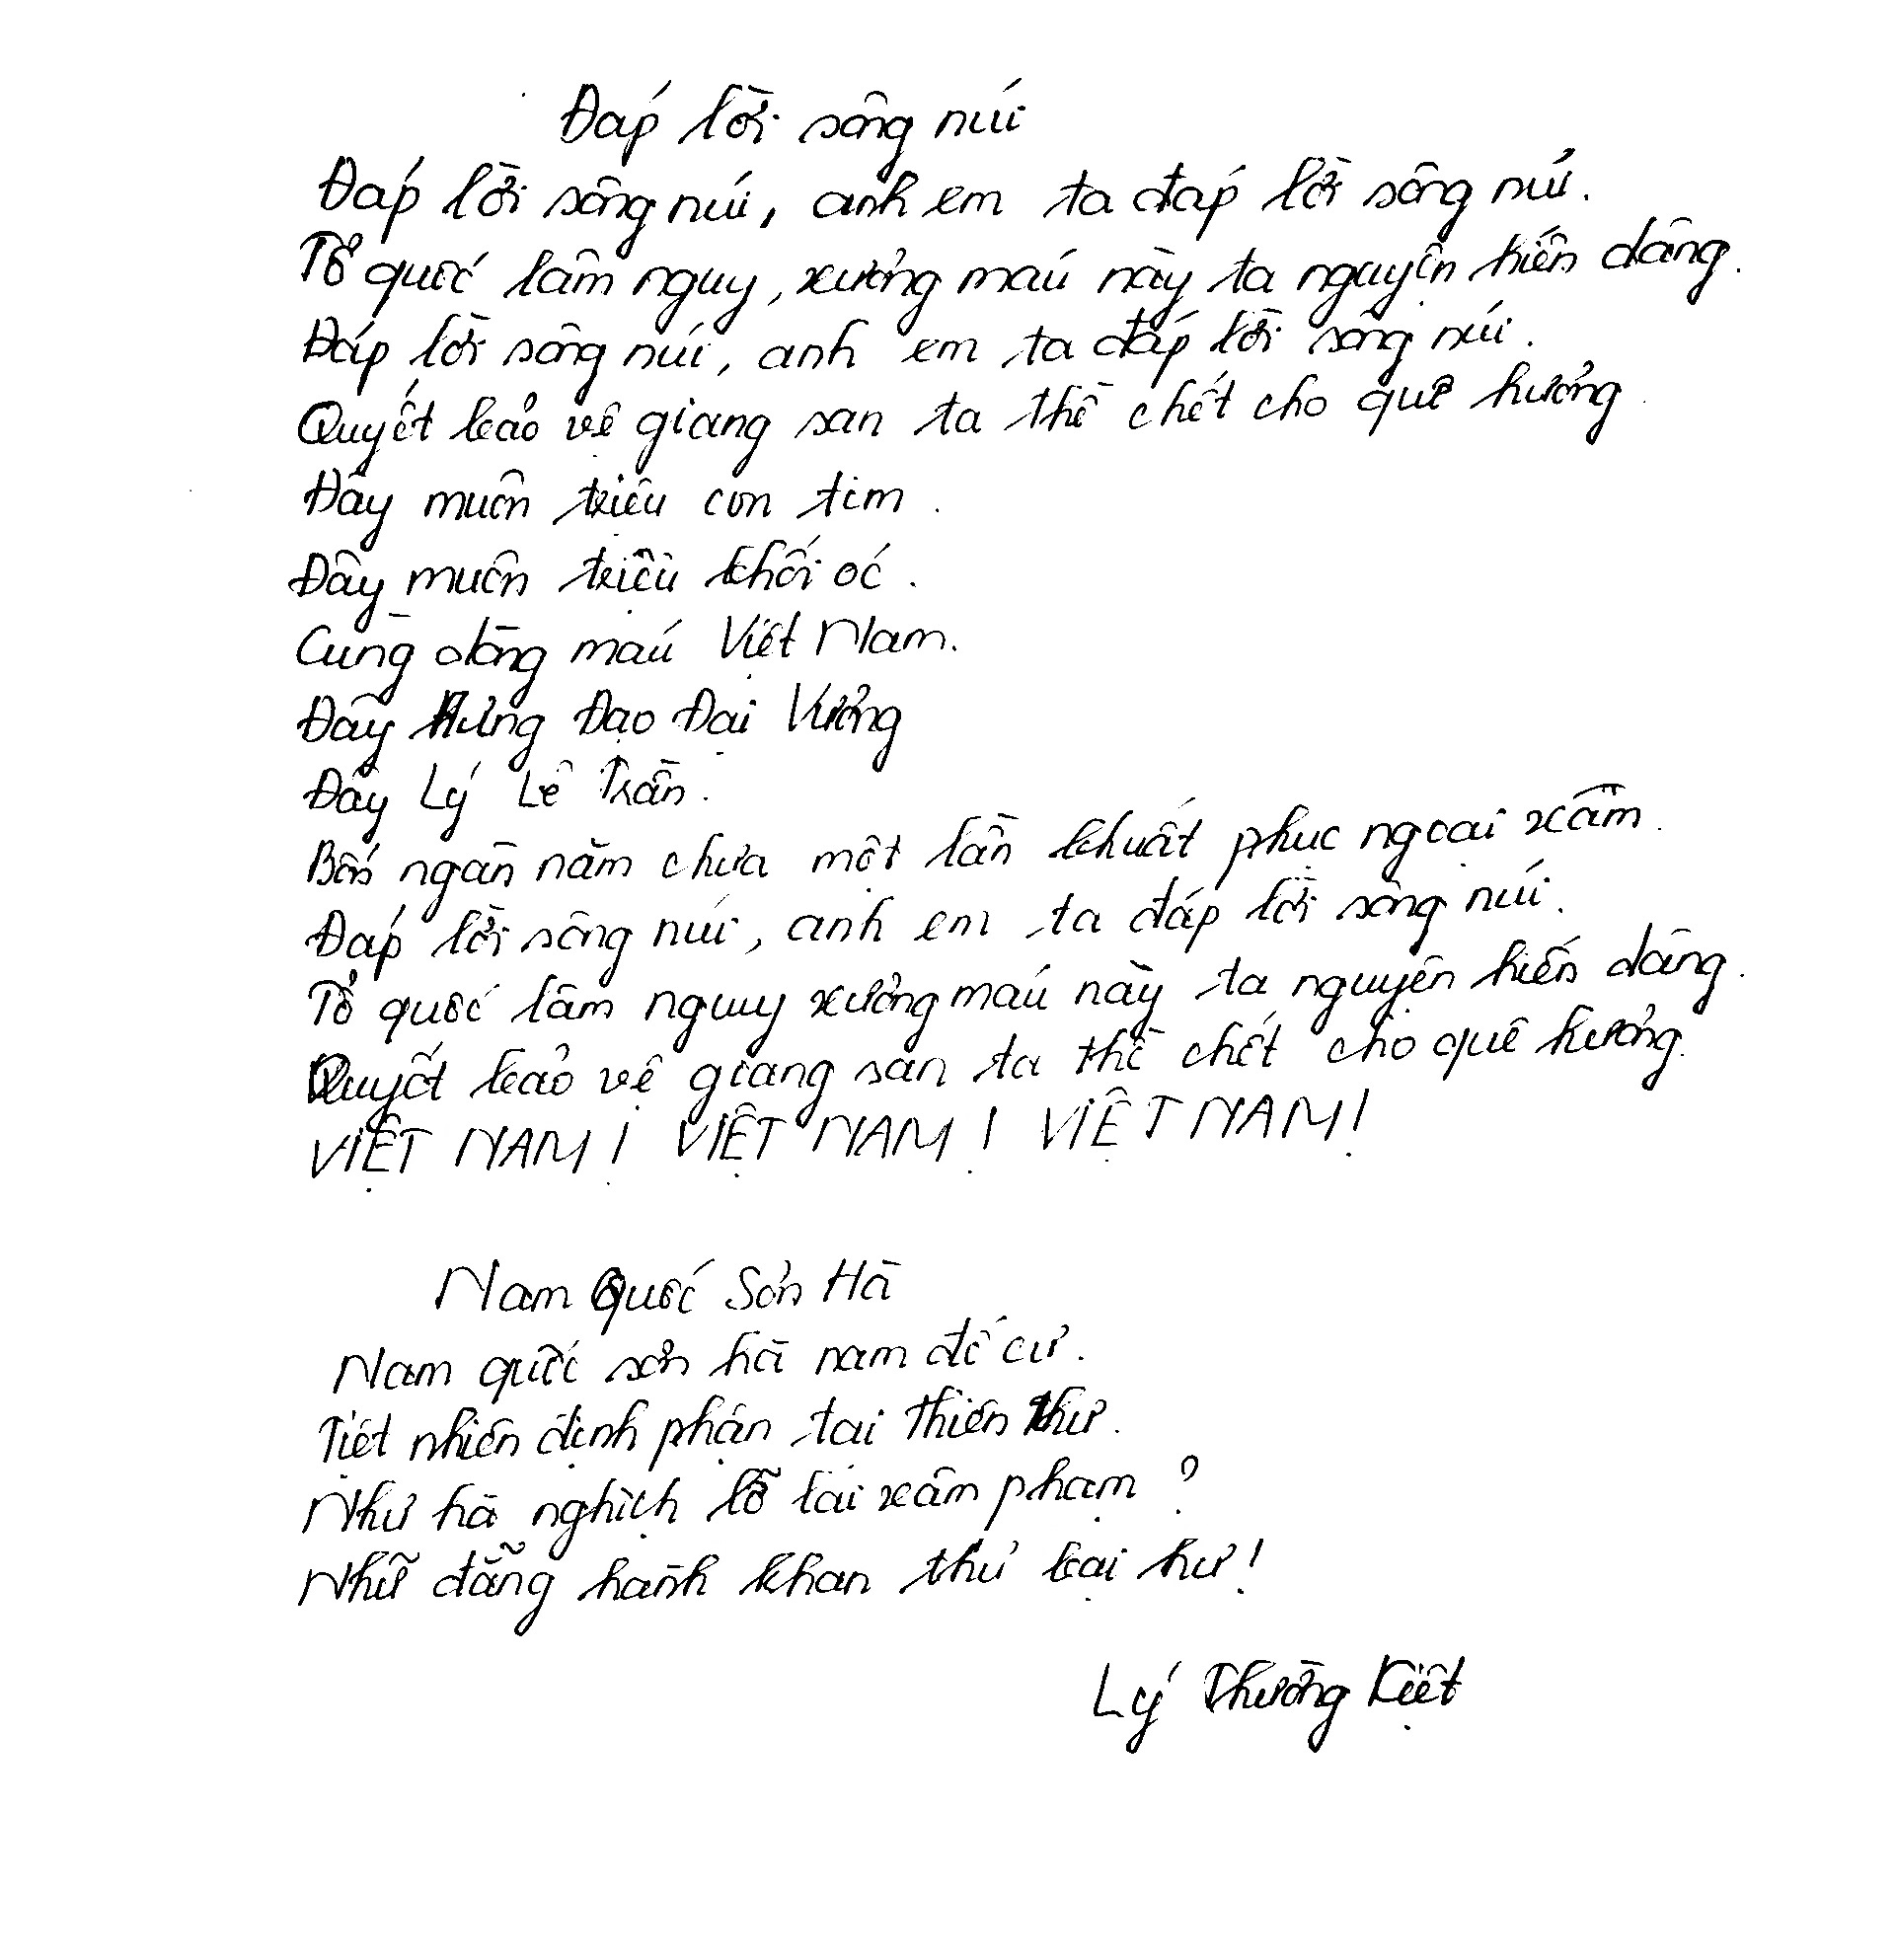 Đáp lời sông núi
Đáp lời sông núi, anh em ta đáp lời sông núi.
Tổ quốc lâm nguy, xương máu này ta nguyện hiến dâng.
Đáp lời sông núi, anh em ta đáp lời sông núi.
Quyết bảo vệ giang san ta thề chết cho quê hương
Đây muôn triệu con tim.
Đây muôn triệu khối óc.
Cùng dòng máu Việt Nam.
Đây Hưng Đạo Đại Vương
Đây Lý Lê Trần.
Bốn ngàn năm chưa một lần khuất phục ngoại xâm.
Đáp lời sông núi, anh em ta đáp lời sông núi.
Tổ quốc lâm nguy xương máu này ta nguyện hiến dâng.
Quyết bảo vệ giang san ta thề chết cho quê hương.
VIỆT NAM! VIỆT NAM! VIỆT NAM!
Nam Quốc Sơn Hà
Nam quốc sơn hà nam đế cư.
Tiệt nhiên định phận tại thiên thư.
Như hà nghịch lỗ lai xâm phạm?
Nhữ đẳng hành khan thủ bại hư!
Lý Thường Kiệt